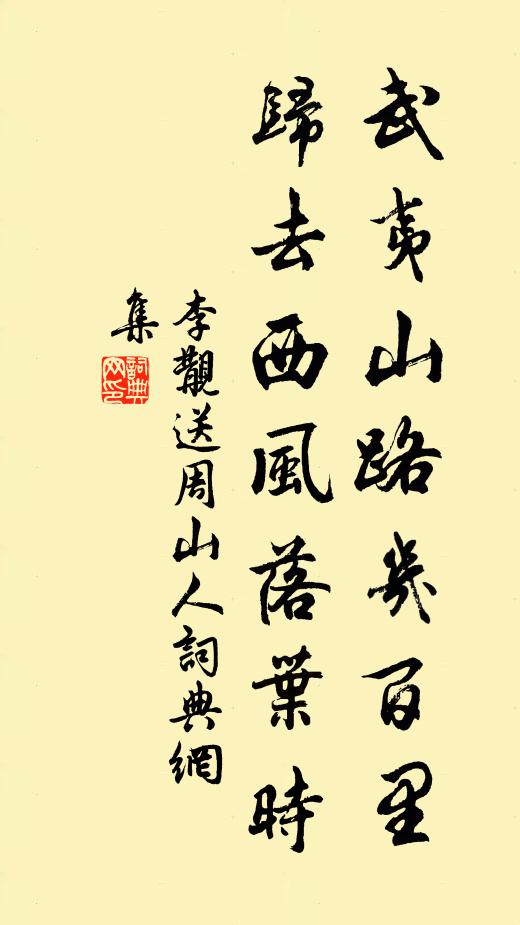 武夷山路幾百里
歸去西風落葉時
李覯送周山人詞典網
集
詞典
网印